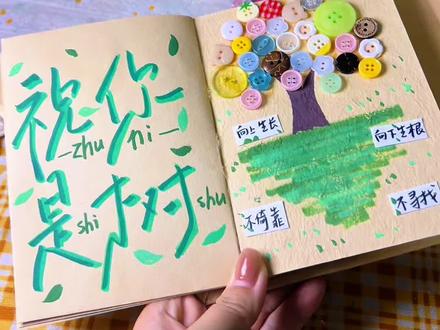 祝你
zhu ni
是树
shi shu
向上生长
向下生根
不倚靠
不寻找